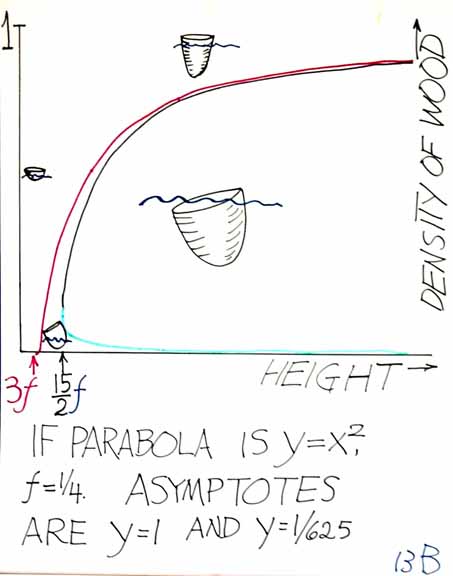 1
DENSITY OF WOOD
3f
15/2 f
HEIGHT
IF PARABOLA IS y=x²,
f=1/4. ASYMPTOTES
ARE y=1 AND y=1/625
13B